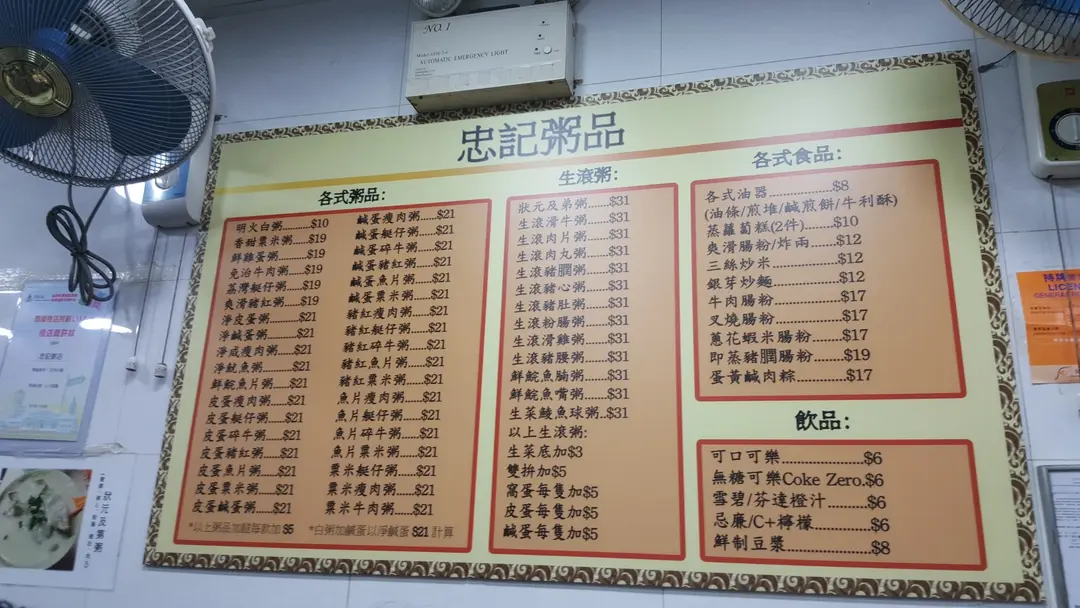 NO. 1
AUTOMATIC EMERGENCY LIGHT
忠記粥品
各式粥品:
明火白粥..........$10
香甜粟米粥....$19
鮮雞蛋粥.........$19
免治牛肉粥....$19
蒸灣艇仔粥....$19
爽滑豬紅粥....$19
淨皮蛋粥.........$21
淨鹹蛋粥.........$21
淨咸瘦肉粥....$21
淨魷魚粥.........$21
鮮鯇魚片粥....$21
皮蛋瘦肉粥....$21
皮蛋艇仔粥....$21
皮蛋碎牛粥....$21
皮蛋豬紅粥....$21
皮蛋魚片粥....$21
皮蛋粟米粥....$21
皮蛋鹹蛋粥....$21
鹹蛋瘦肉粥.....$21
鹹蛋艇仔粥.....$21
鹹蛋碎牛粥.....$21
鹹蛋豬紅粥.....$21
鹹蛋魚片粥.....$21
鹹蛋粟米粥.....$21
豬紅瘦肉粥.....$21
豬紅艇仔粥.....$21
豬紅碎牛粥.....$21
豬紅魚片粥.....$21
豬紅粟米粥.....$21
魚片瘦肉粥.....$21
魚片艇仔粥.....$21
魚片碎牛粥.....$21
魚片粟米粥.....$21
粟米艇仔粥.....$21
粟米瘦肉粥.....$21
粟米牛肉粥.....$21
*以上粥品加餸每款加 $5
*白粥加鹹蛋以淨鹹蛋 $21 計算
生滾粥:
狀元及弟粥.....$31
生滾滑牛粥.....$31
生滾肉片粥.....$31
生滾肉丸粥.....$31
生滾豬膶粥.....$31
生滾豬心粥.....$31
生滾豬肚粥.....$31
生滾粉腸粥.....$31
生滾滑雞粥.....$31
生滾豬腰粥.....$31
鮮鯇魚腩粥.....$31
鮮鯇魚嘴粥.....$31
生菜鯪魚球粥..$31
以上生滾粥:
生菜底加$3
雙拼加$5
窩蛋每隻加$5
皮蛋每隻加$5
鹹蛋每隻加$5
各式食品:
各式油器....................$8
(油條/煎堆/鹹煎餅/牛利酥)
蒸蘿蔔糕(2件)........$10
爽滑腸粉/炸兩........$12
三絲炒米..................$12
銀芽炒麵..................$12
牛肉腸粉..................$17
叉燒腸粉..................$17
蔥花蝦米腸粉........$17
即蒸豬膶腸粉........$19
蛋黃鹹肉粽.............$17
飲品:
可口可樂.....................$6
無糖可樂Coke Zero.$6
雪碧/芬達橙汁..........$6
忌廉/C+檸檬..............$6
鮮制豆漿.....................$8
狀元及第粥